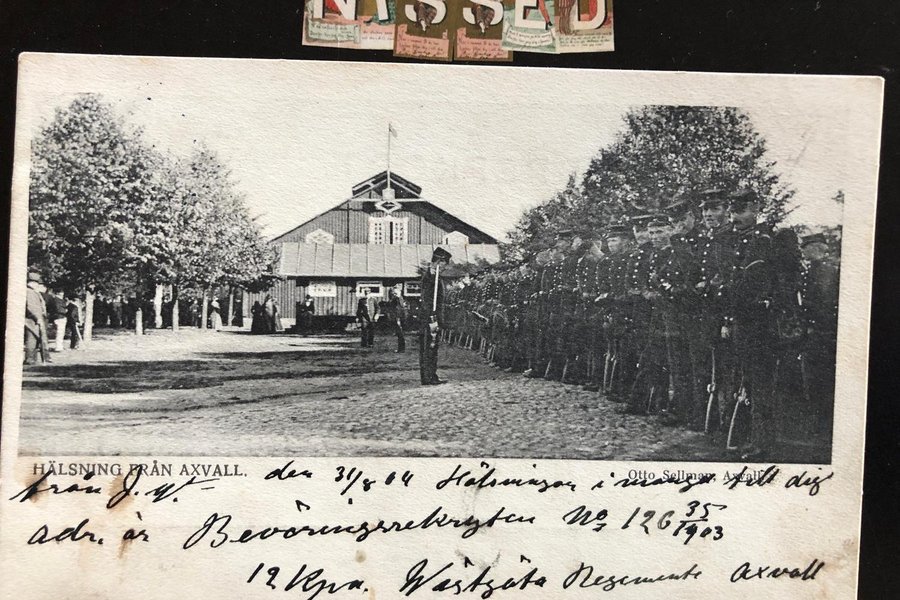 NISSED
HÄLSNING FRÅN AXVALL.
Otto Sellman, Axvall
från J. W. den 31/8 04 Hälsningar i till dig
adr. är Beväringsrekryten No 126 35/1903
12 Kpn. Wästgöta Regemente Axvall